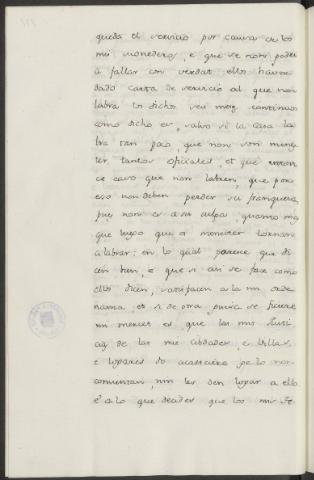 queda el servicio por causa de los
mis monederos, e que se non podra
a fallar con verdat ellos haver
dado carta de servicio al que non
labra los dichos seis meses continuos
como dicho es, salvo si la casa la
bra tan poco, que non son menes
ter, tantos oficiales, et que en
ce caso que non labren, que por
eso non deben perder su franqueza,
pues non es a su culpa, quanto mas
que luego que es menester tornan
a labrar: en lo qual parece que di
cen bien, e que si asi se face como
ellos dicen, satisfacen a la mi orde
nanza, et si de otra guisa se ficiere
mi merced es, que las mis Justi
cias de las mis cibdades, e Villas,
e logares do acaesciere ge lo non
consientan, nin les den logar a ello
E a lo que decides que los mis Te